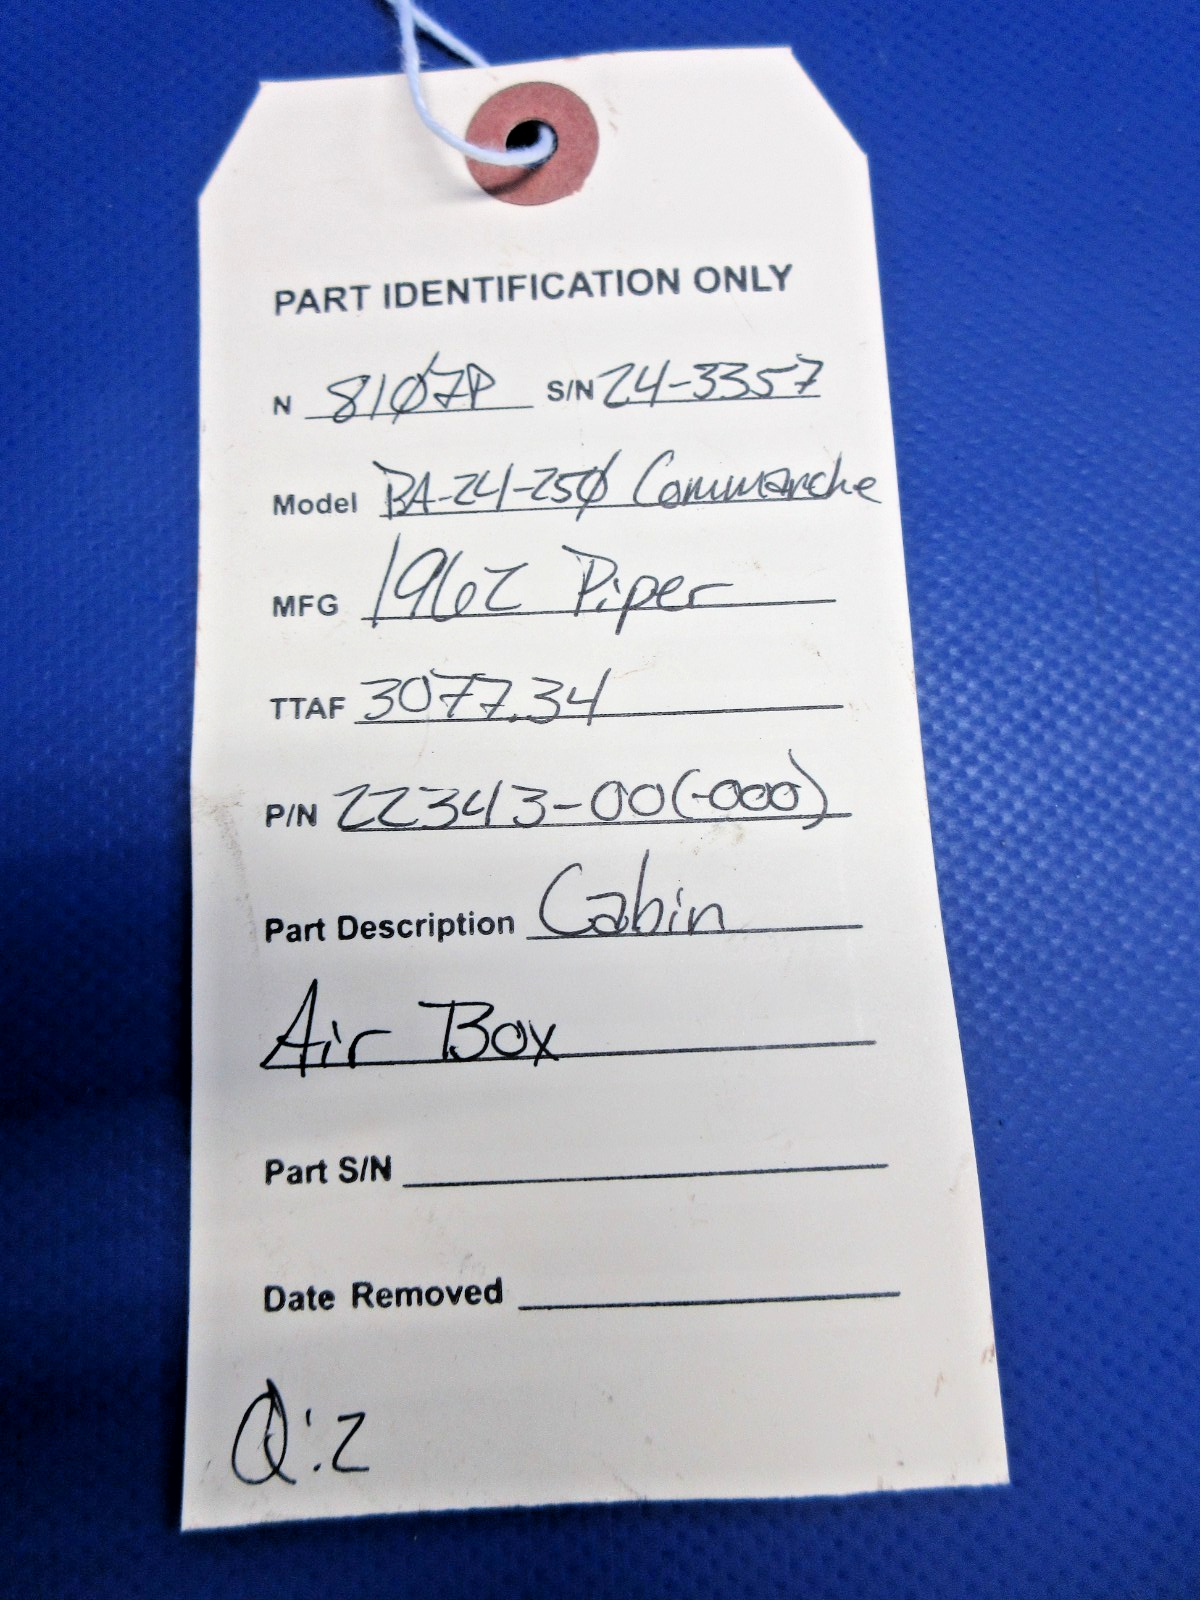 PART IDENTIFICATION ONLY
N 8107P S/N 24-3357
Model PA-24-250 Commanche
MFG 1962 Piper
TTAF 3077.34
P/N 22343-00(-000)
Part Description Cabin
Air Box
Part S/N
Date Removed
Q:2